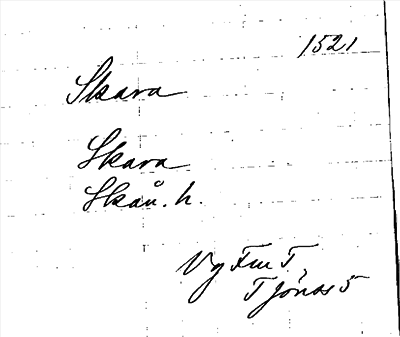 1521
Skara
Skara
Skån. h.
Vg Fm T,
T Jönos 5